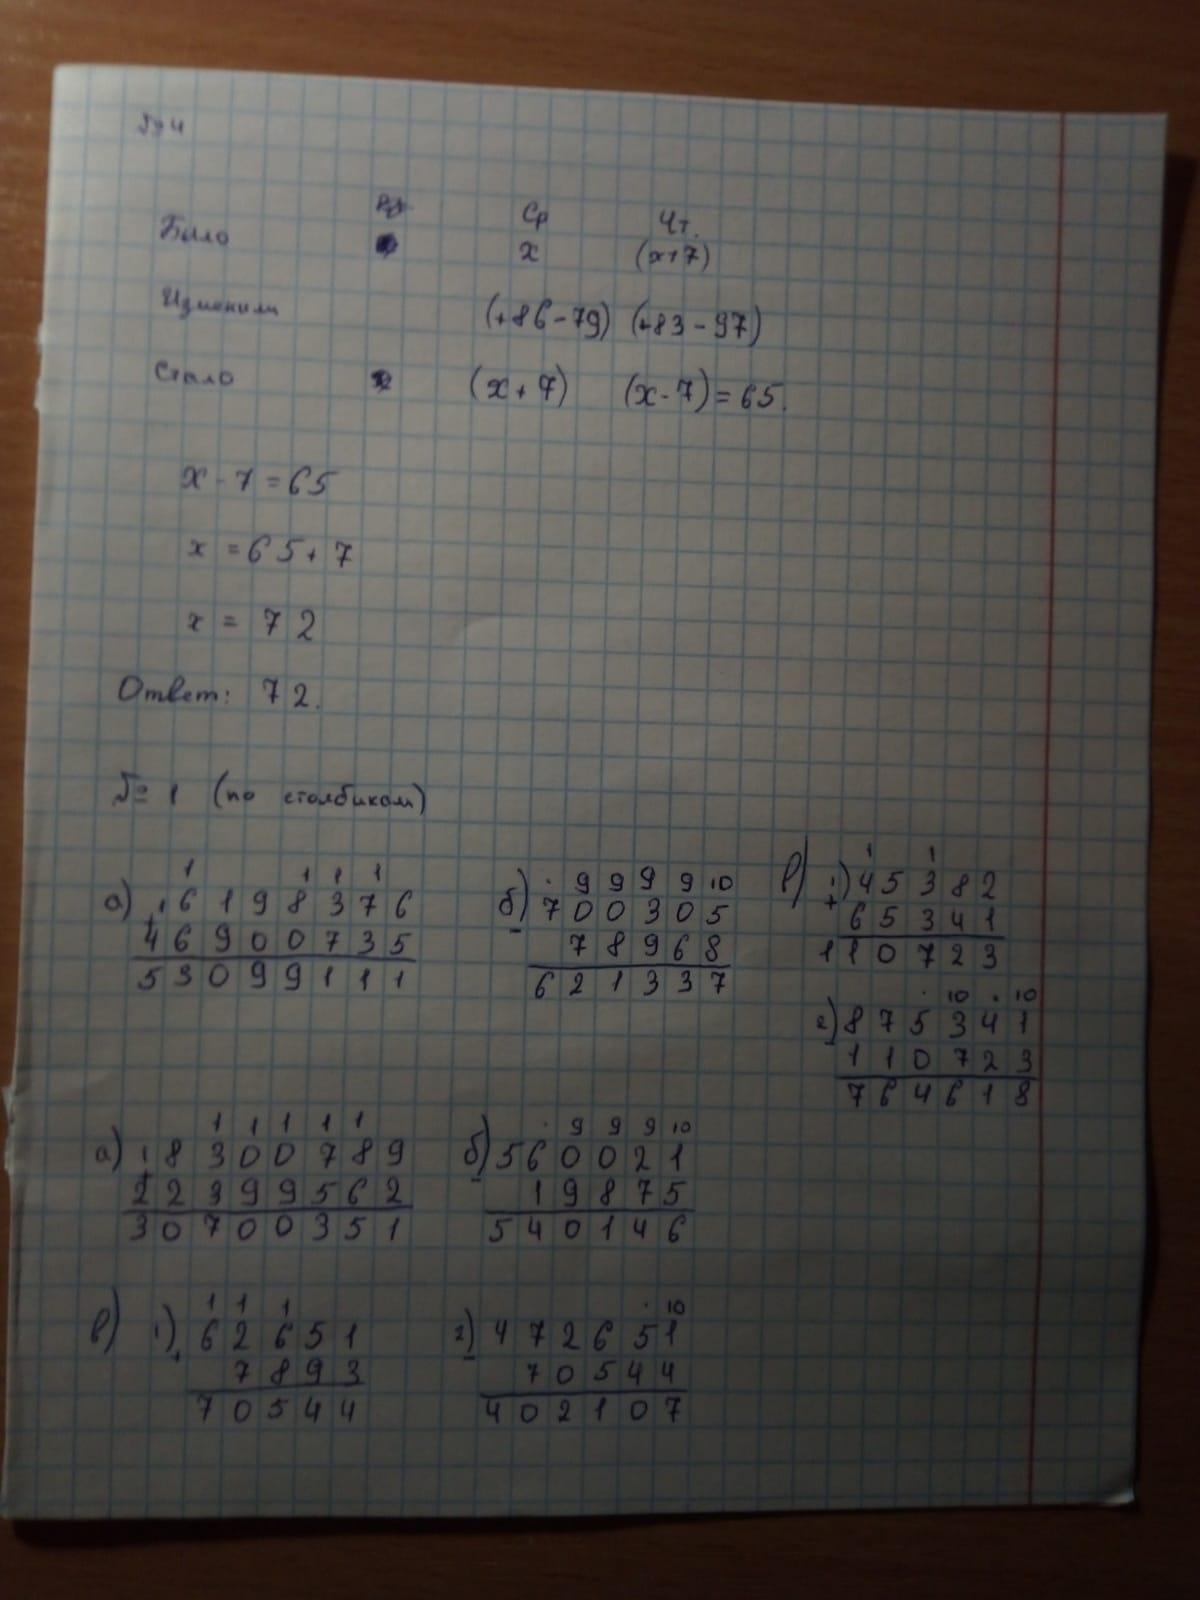 №4
Ср Чт.
Было x (x+7)
Изменили (+86-79) (+83-97)
Стало (x+7) (x-7)=65.
x-7=65
x=65+7
x=72
Ответ: 72.
№1 (по столбикам)
1 1 1 1
а) + 6198376
46900735
53099111
. 9 9 9 9 10
б) - 700305
78968
621337
в) 1 1
1) + 45382
65341
110723
. 10 . 10
2) - 875341
110723
764618
1 1 1 1 1
а) + 8300789
22399562
30700351
. 9 9 9 10
б) - 560021
19875
540146
в) 1 1 1
1) + 62651
7893
70544
. 10
2) - 472651
70544
402107